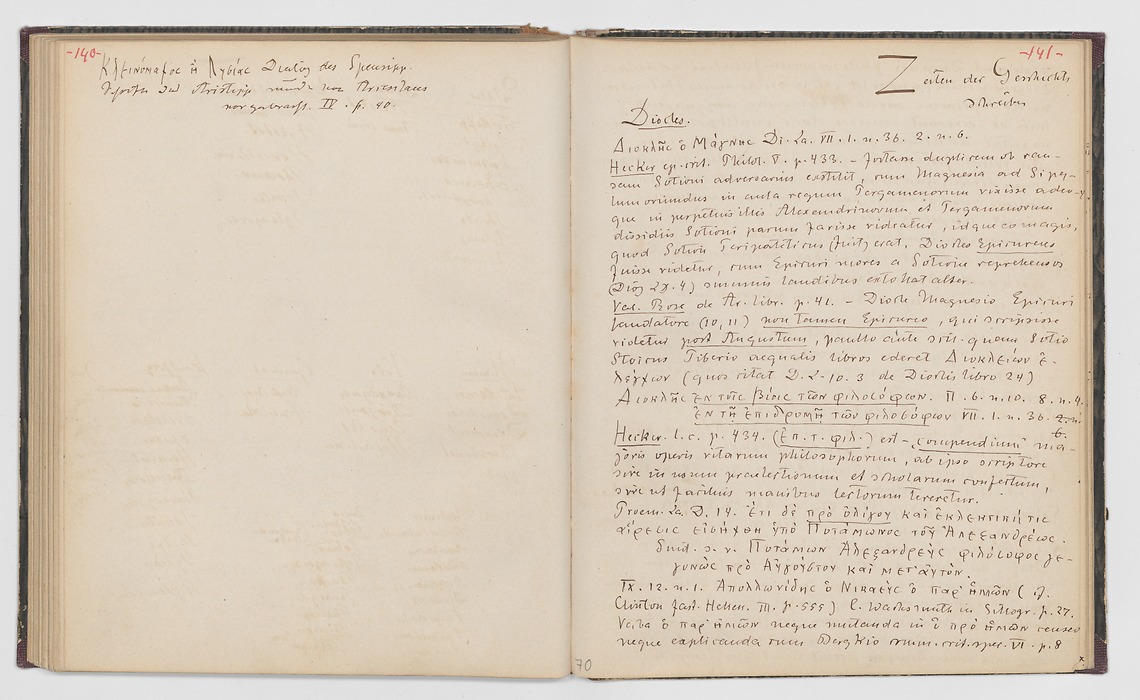 -140-
Κλεινόμαχος ἢ Λυσίας Dialog des Speusipp.
Aristipp von Arcesilaus
vorgebracht. IV. p. 40.
-141-
Zeiten der Geschicht
schreiber
Diocles.
Διοκλῆς ὁ Μάγνης Di. La. VII. 1. n. 36. 2. n. 6.
Hecker ep. crit. Philol. V. p. 433. – fortasse duplicem ob cau-
sam Sotioni adversarius extitit, cum Magnesia ad Sipy-
lum oriundus in aula regum Pergamenorum vixisse adeo-
que in perpetuis illis Alexandrinorum et Pergamenorum
dissidiis Sotioni parum favisse videatur, idque eo magis,
quod Sotion Peripateticus (fuit) erat, Diocles Epicureus
fuisse videtur, cum Epicuri mores a Sotione reprehensos
(Diog LX. 4) summis laudibus extollat alter.
Val. Rose de Ar. libr. p. 41. – Diocle Magnesio Epicuri
laudatore (10, 11) non tamen Epicureo, qui scripsisse
videtur post Augustum, paullo ante scil. quam Sotio
Stoicus Tiberio aequalis libros ederet Διοκλείων ἐ-
λέγχων (quos citat D. L. 10. 3 de Dioclis libro 24)
Διοκλῆς ἐν τοῖς βίοις τῶν φιλοσόφων. Π. 6. n. 10. 8. n. 4.
ἐν τῇ ἐπιδρομῇ τῶν φιλοσόφων VII. 1. n. 36. 2. n.
6.
Hecker. l. c. p. 434. (ἐπ. τ. φιλ.) est – „compendium ma-
joris operis vitarum philosophorum, ab ipso scriptore
sive in usum praelectionum et scholarum confectum,
sive ut facilius manibus lectorum tereretur.
Proem. La. D. 14. ἔτι δὲ πρὸ ὀλίγου καὶ ἐκλεκτική τις
αἵρεσις εἰσήχθη ὑπὸ Ποτάμωνος τοῦ Ἀλεξανδρέως.
Suid. s. v. Ποτάμων Ἀλεξανδρεὺς φιλόσοφος γε-
γονὼς πρὸ Αὐγούστου καὶ μετ' αὐτόν.
IX. 12. n. 1. Ἀπολλωνίδης ὁ Νικαεὺς ὁ παρ' ἡμῶν (cf.
Clinton fast. Hellen. III. p. 555) C. Wachsmuth in Sillogr. p. 27.
Verba ὁ παρ' ἡμῶν neque mutanda in ὁ πρὸ ἡμῶν censeo
neque explicanda cum Bergkio comm. crit. spec. VI. p. 8
70